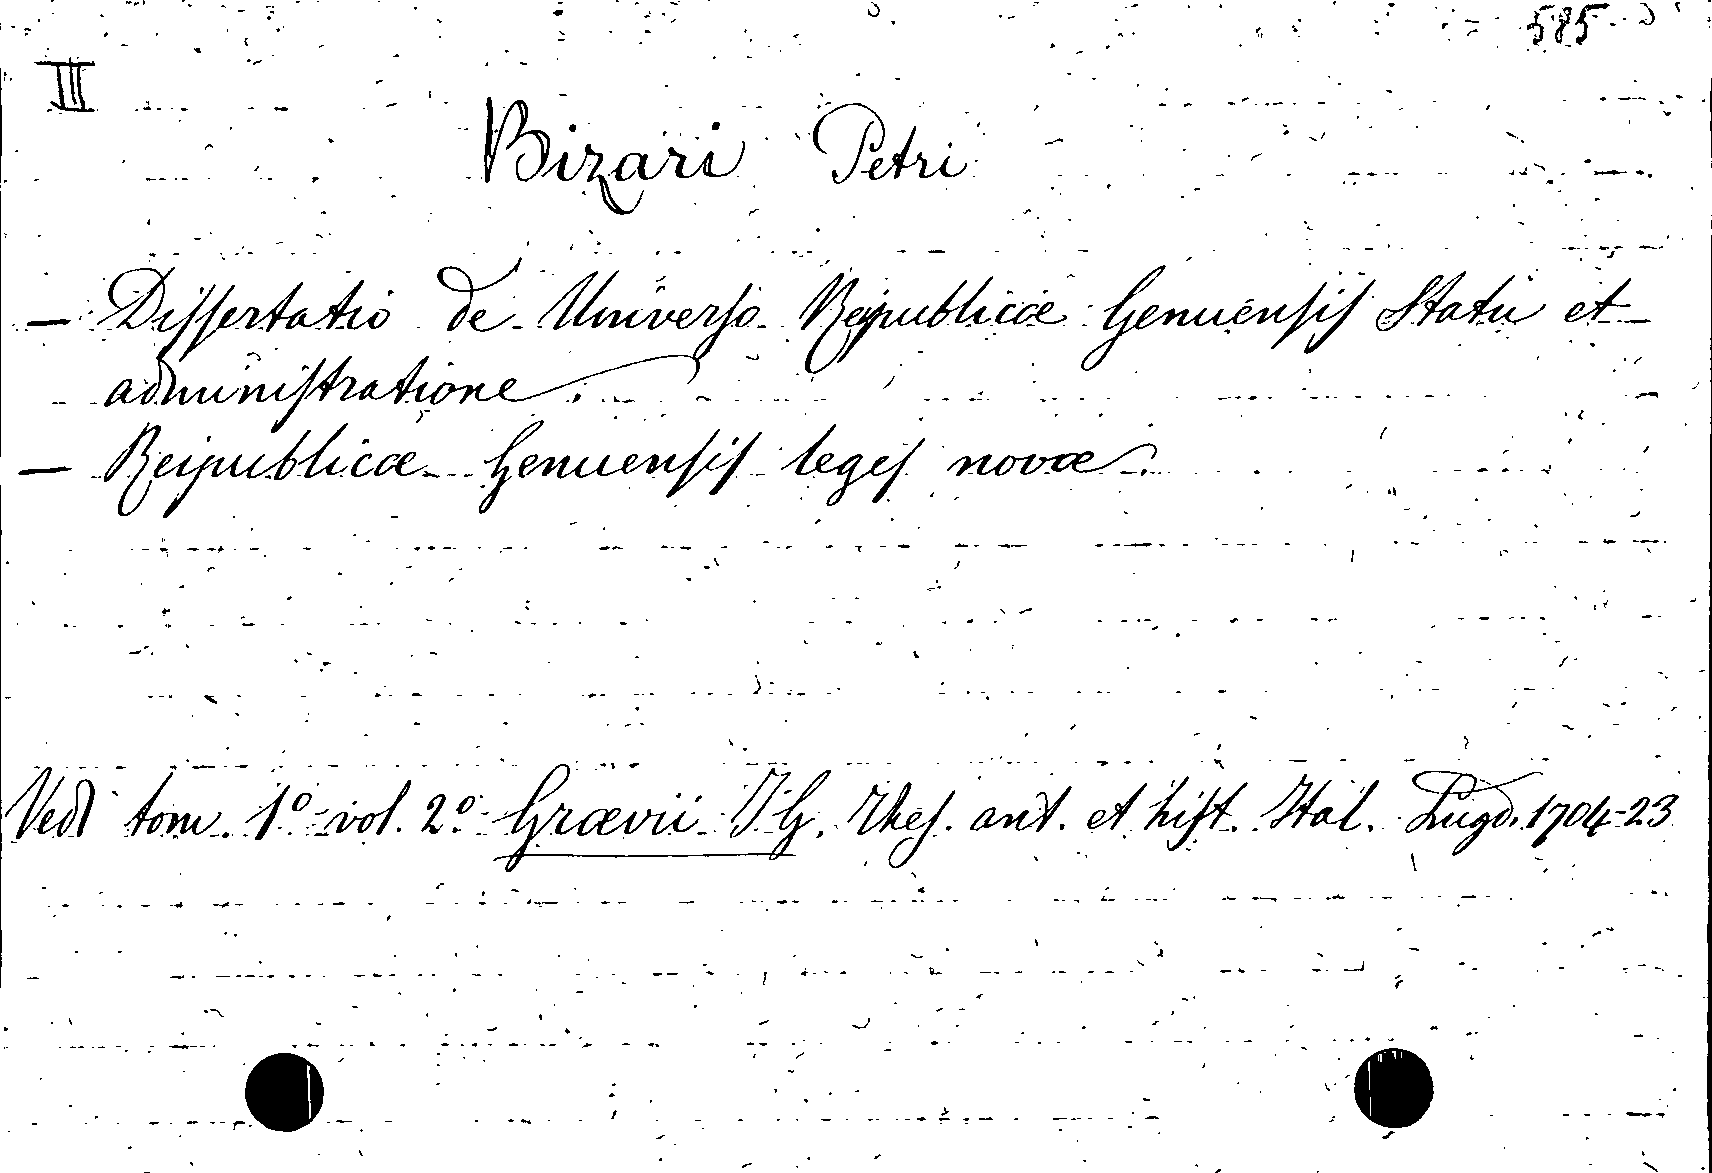 585
III
Bizari Petri
— Dissertatio de Universo Reipublicæ Genuensis Statu et
administratione
— Reipublicæ Genuensis leges novæ
Vedi tom. 1º vol. 2º Grævii J G. Thes. ant. et hist. Ital. Lugd. 1704-23